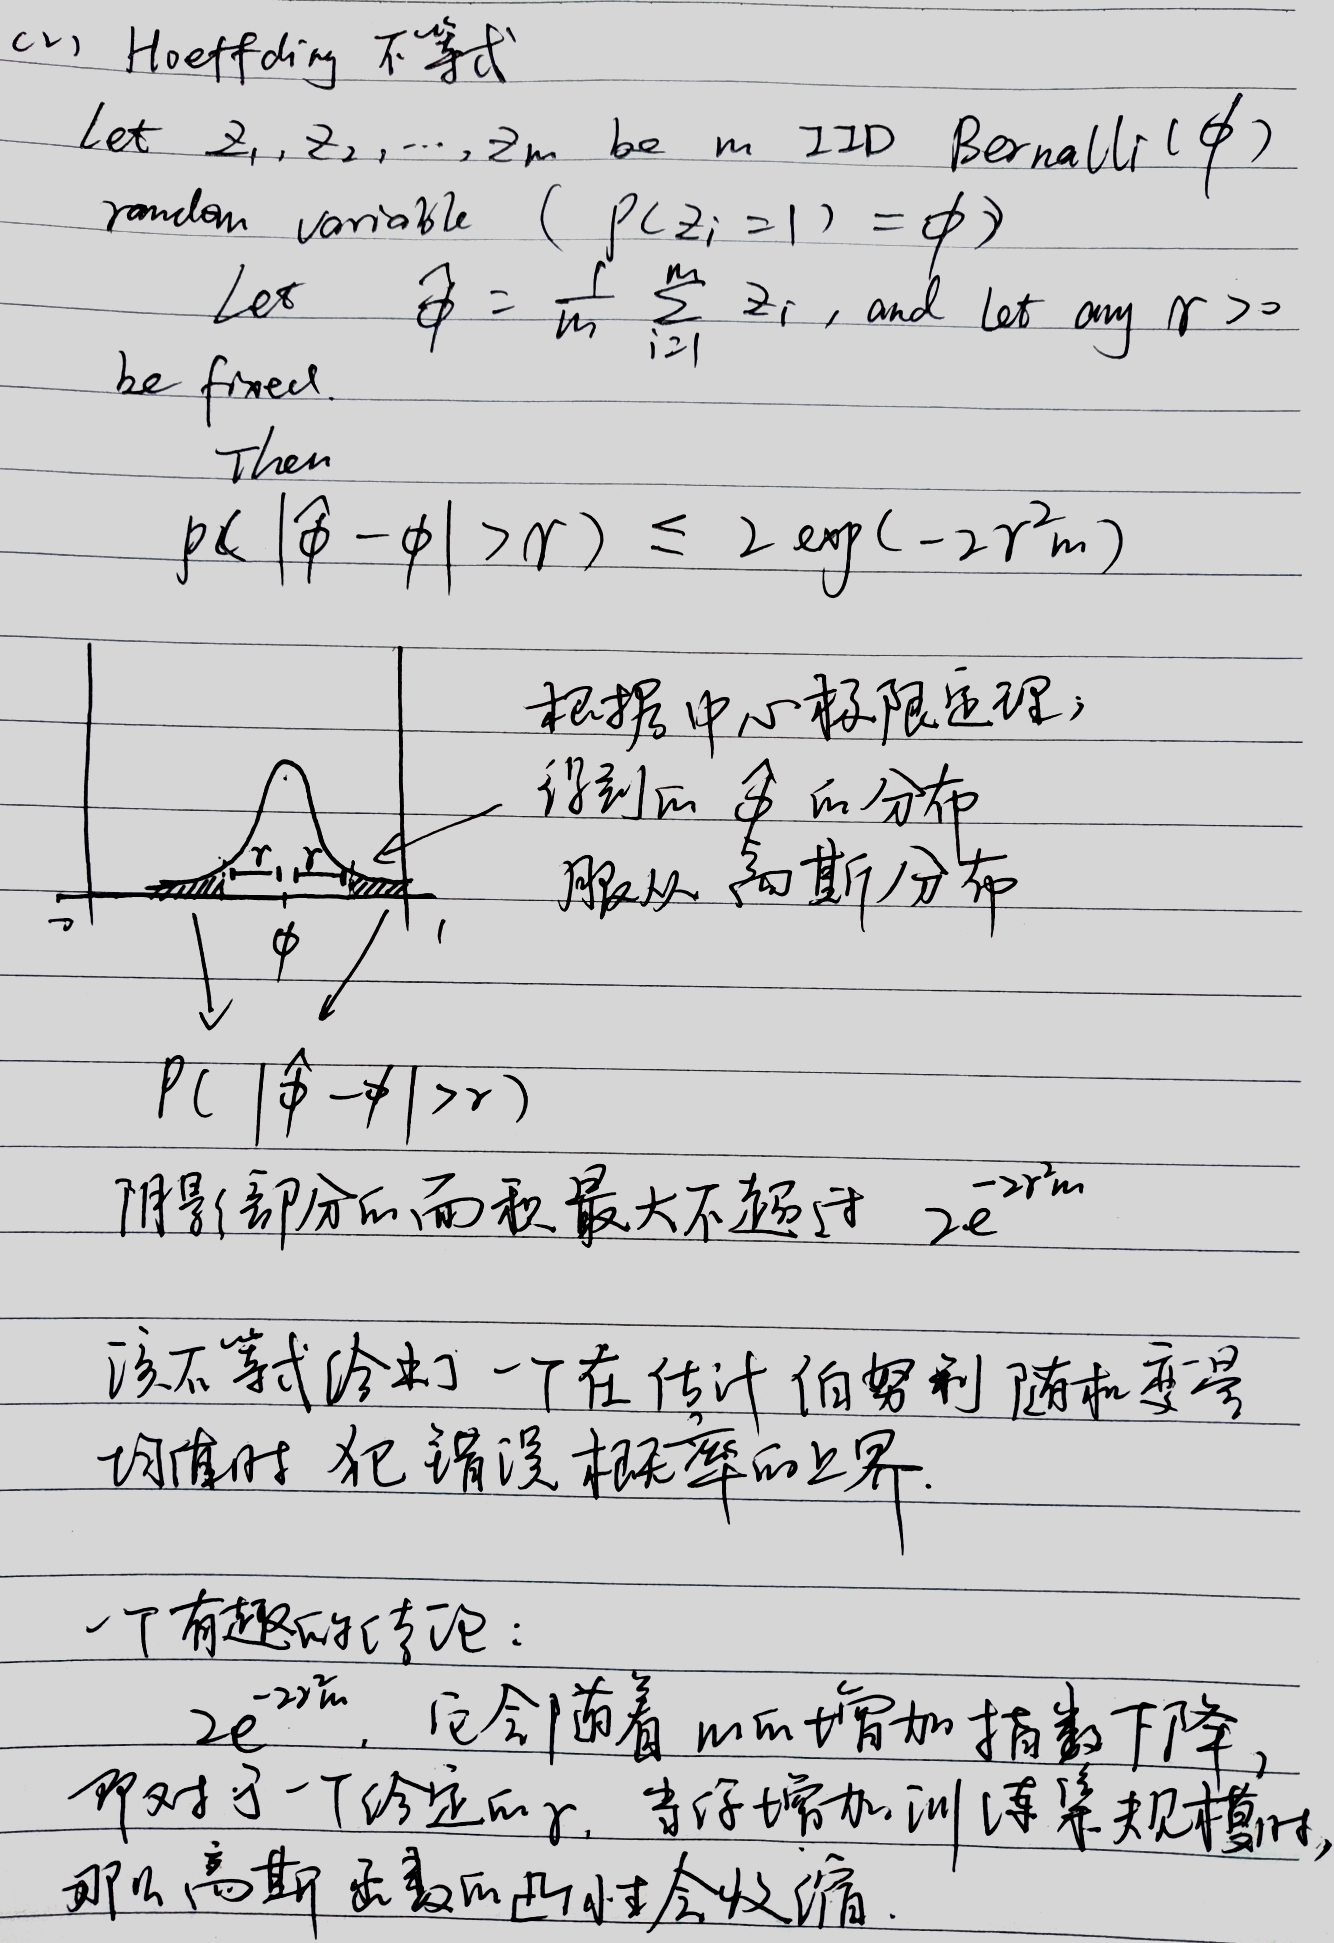 (2) Hoeffding 不等式
Let z₁, z₂, ⋯, zm be m IID Bernalli(ϕ)
random variable ( P(zᵢ=1) = ϕ)
Let ϕ̂ = 1/m ∑_{i=1}^{m} zᵢ , and let any γ>0
be fixed.
Then
P( |ϕ̂ - ϕ| > γ) ≤ 2 exp(-2γ²m)
根据中心极限定理,
得到的 ϕ̂ 的分布
服从 高斯分布
γ γ
0 ϕ 1
P( |ϕ̂ - ϕ| > γ)
阴影部分的面积最大不超过 2e^{-2γ²m}
该不等式给出了一个在估计伯努利随机变量
均值时 犯错误概率的上界.
一个有趣的结论:
2e^{-2γ²m}, 它会随着 m的增加指数下降,
即对于一个给定的γ, 当你增加训练集规模时,
那么高斯函数的凸性会收缩.